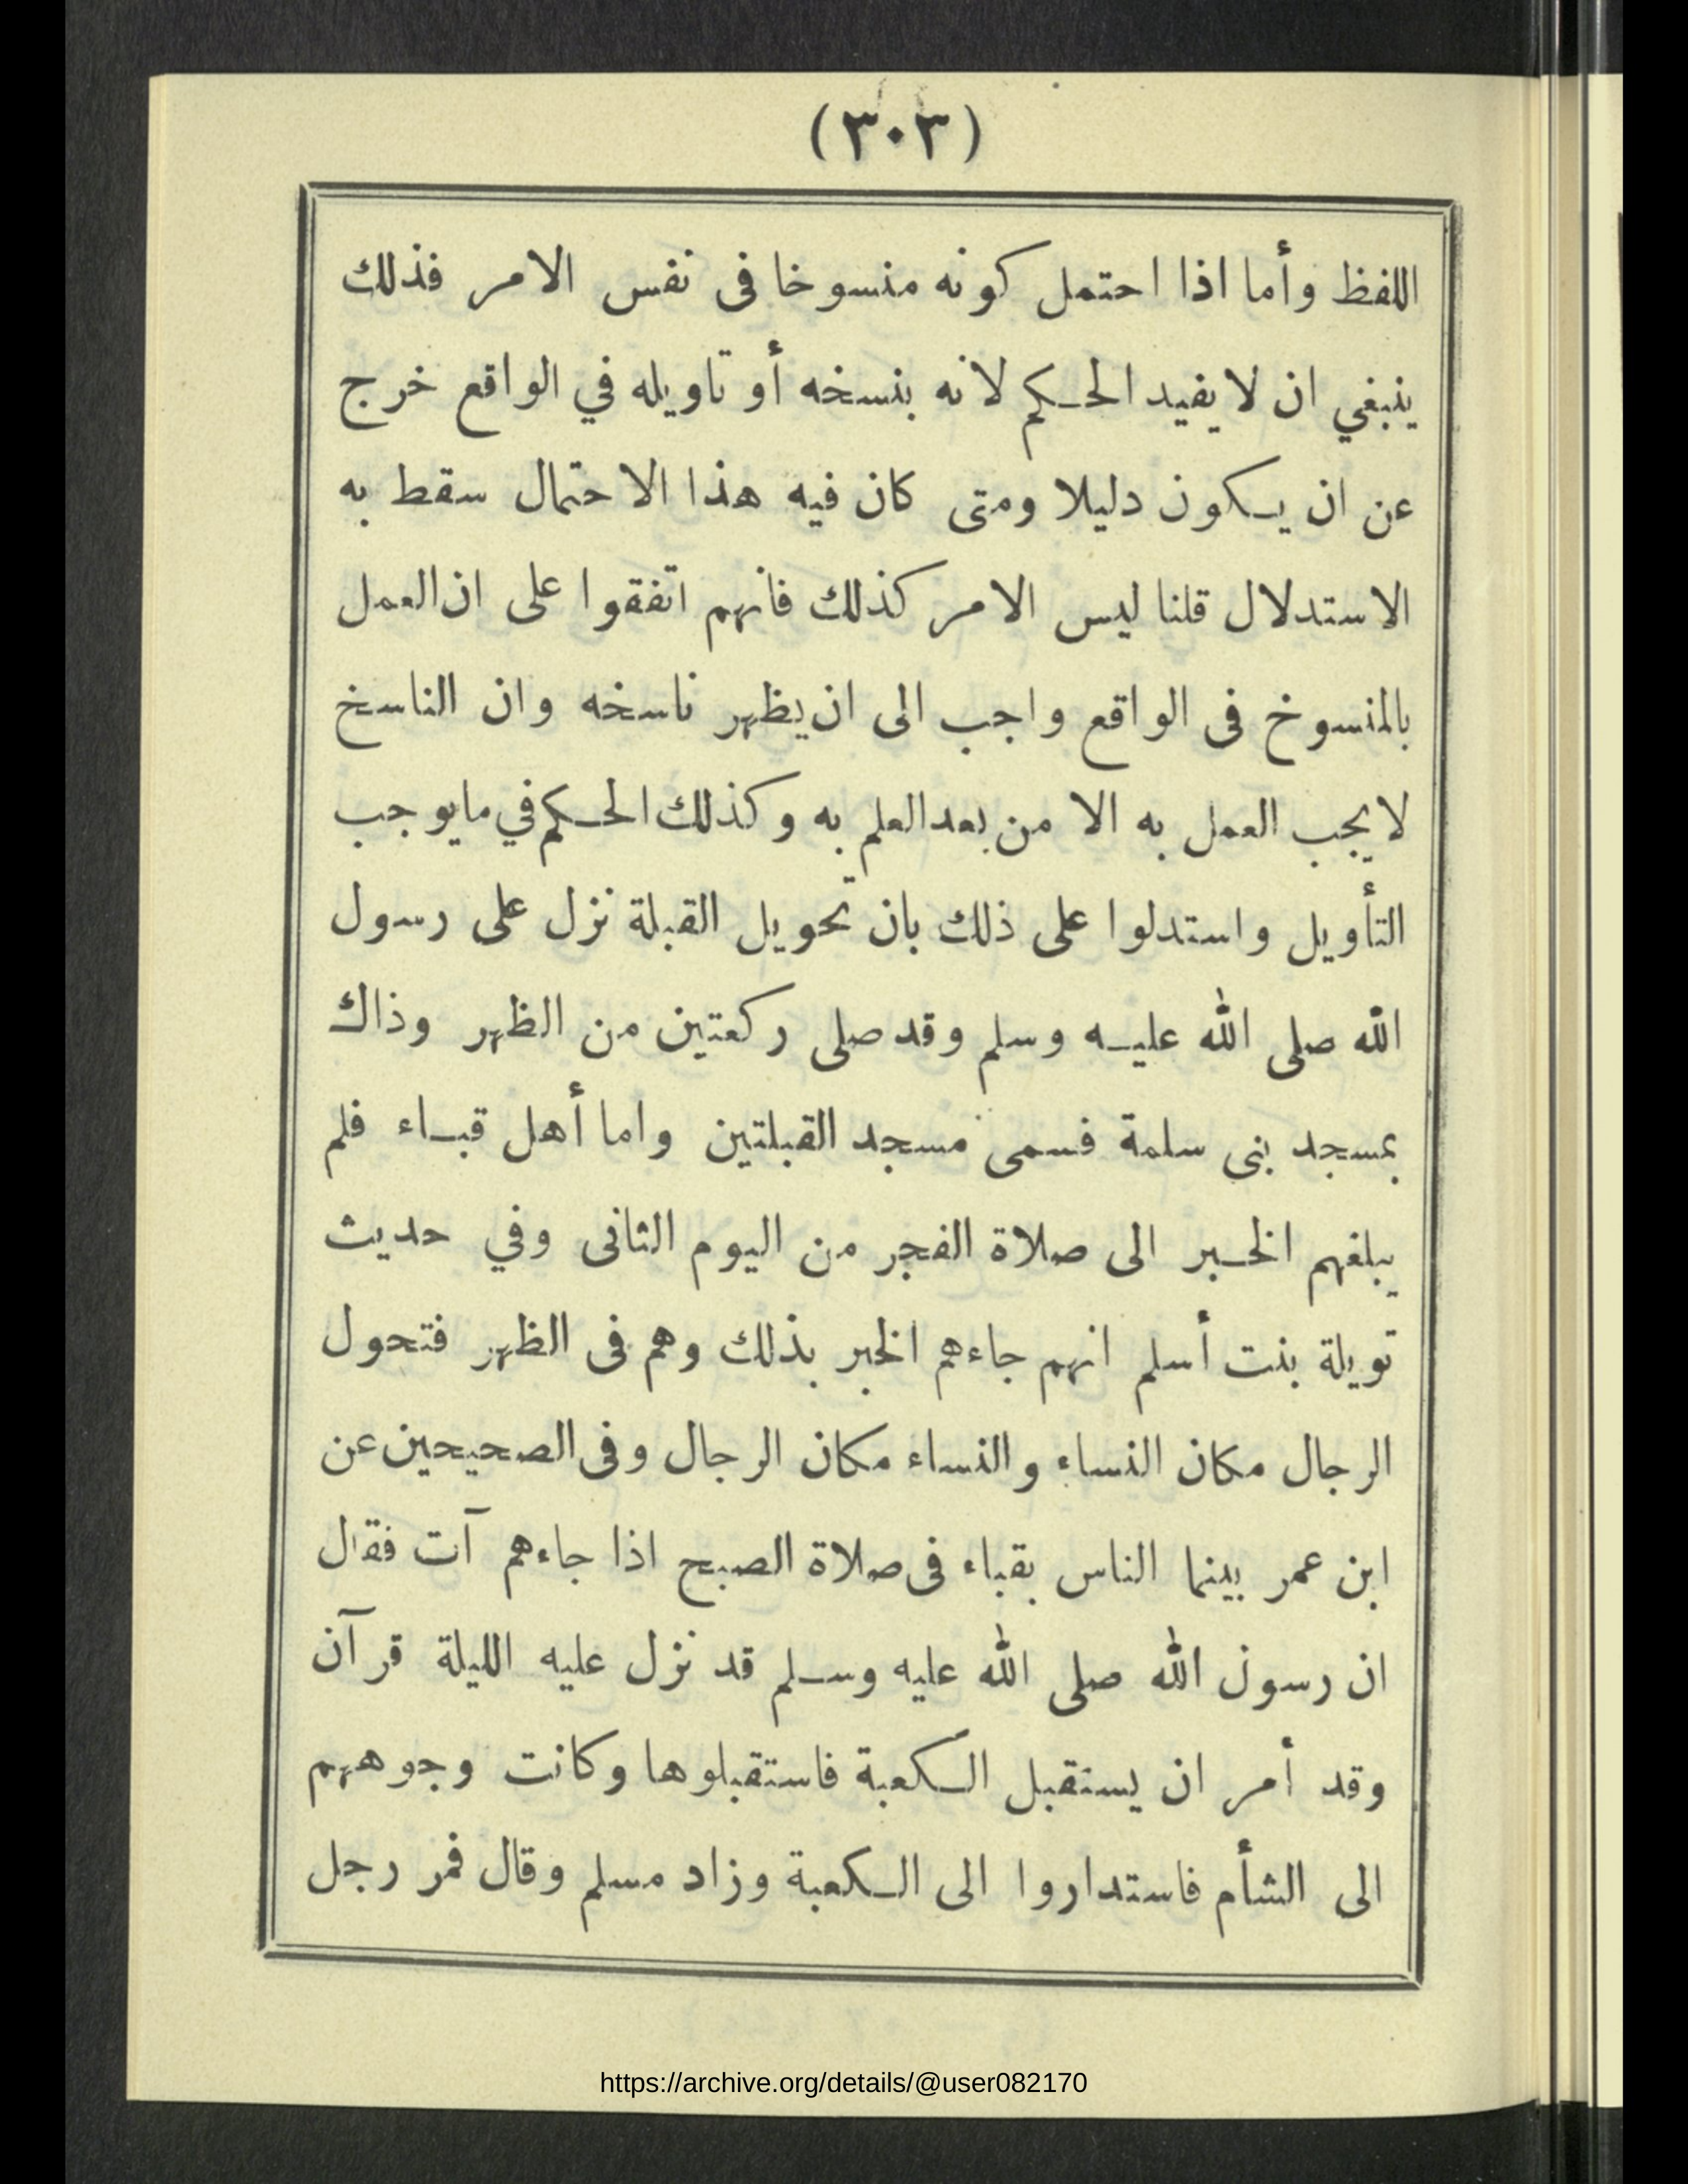 (٣٠٣)
اللفظ وأما اذا احتمل كونه منسوخا فى نفس الامر فذلك
ينبغي ان لا يفيد الحكم لانه بنسخه أو تاويله في الواقع خرج
عن ان يكون دليلا ومتى كان فيه هذا الاحتمال سقط به
الاستدلال قلنا ليس الامر كذلك فانهم اتفقوا على ان العمل
بالمنسوخ فى الواقع واجب الى ان يظهر ناسخه وان الناسخ
لا يجب العمل به الا من بعد العلم به وكذلك الحكم في ما يوجب
التأويل واستدلوا على ذلك بان تحويل القبلة نزل على رسول
الله صلى الله عليه وسلم وقد صلى ركعتين من الظهر وذاك
بمسجد بنى سلمة فسمى مسجد القبلتين واما أهل قباء فلم
يبلغهم الخبر الى صلاة الفجر من اليوم الثانى وفي حديث
تويلة بنت أسلم انهم جاءهم الخبر بذلك وهم فى الظهر فتحول
الرجال مكان النساء والنساء مكان الرجال وفى الصحيحين عن
ابن عمر بينما الناس بقباء فى صلاة الصبح اذا جاءهم آت فقال
ان رسول الله صلى الله عليه وسلم قد نزل عليه الليلة قرآن
وقد أمر ان يستقبل الكعبة فاستقبلوها وكانت وجوههم
الى الشأم فاستداروا الى الكعبة وزاد مسلم وقال فمر رجل
https://archive.org/details/@user082170